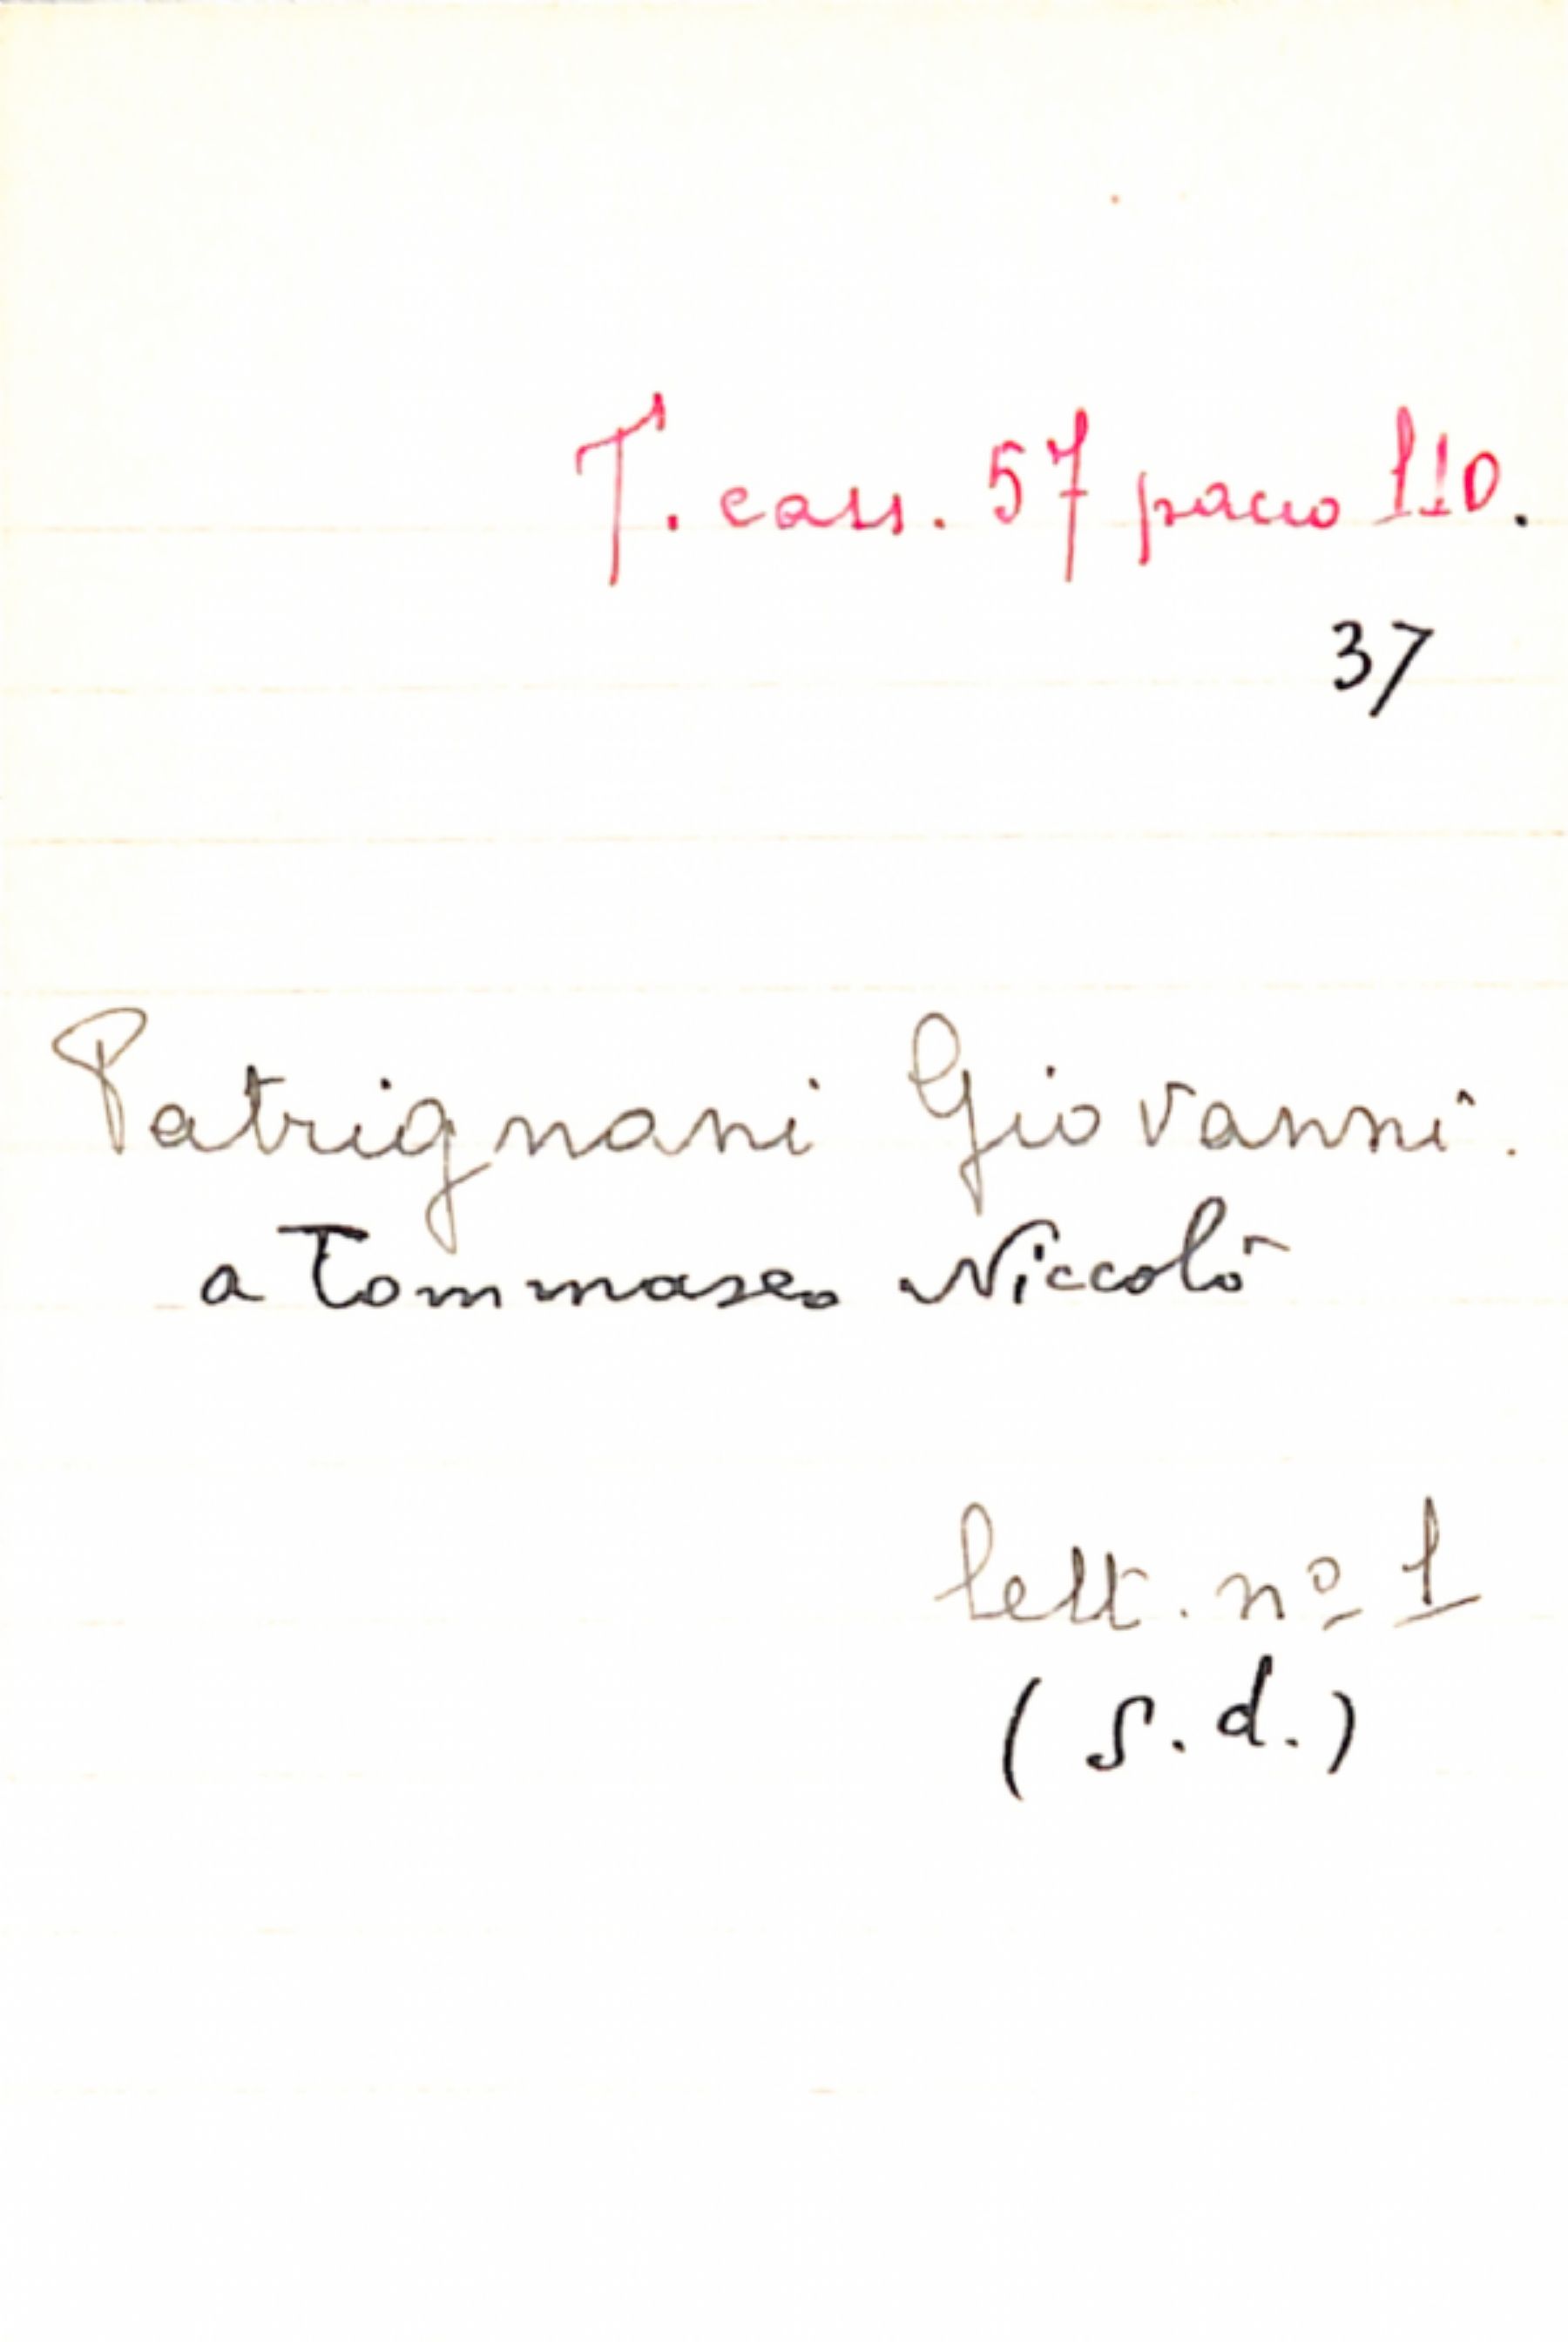 T. cass. 57 pacco 110.
37
Patrignani Giovanni.
a Tommaseo Niccolò
lett. nº 1
(s.d.)